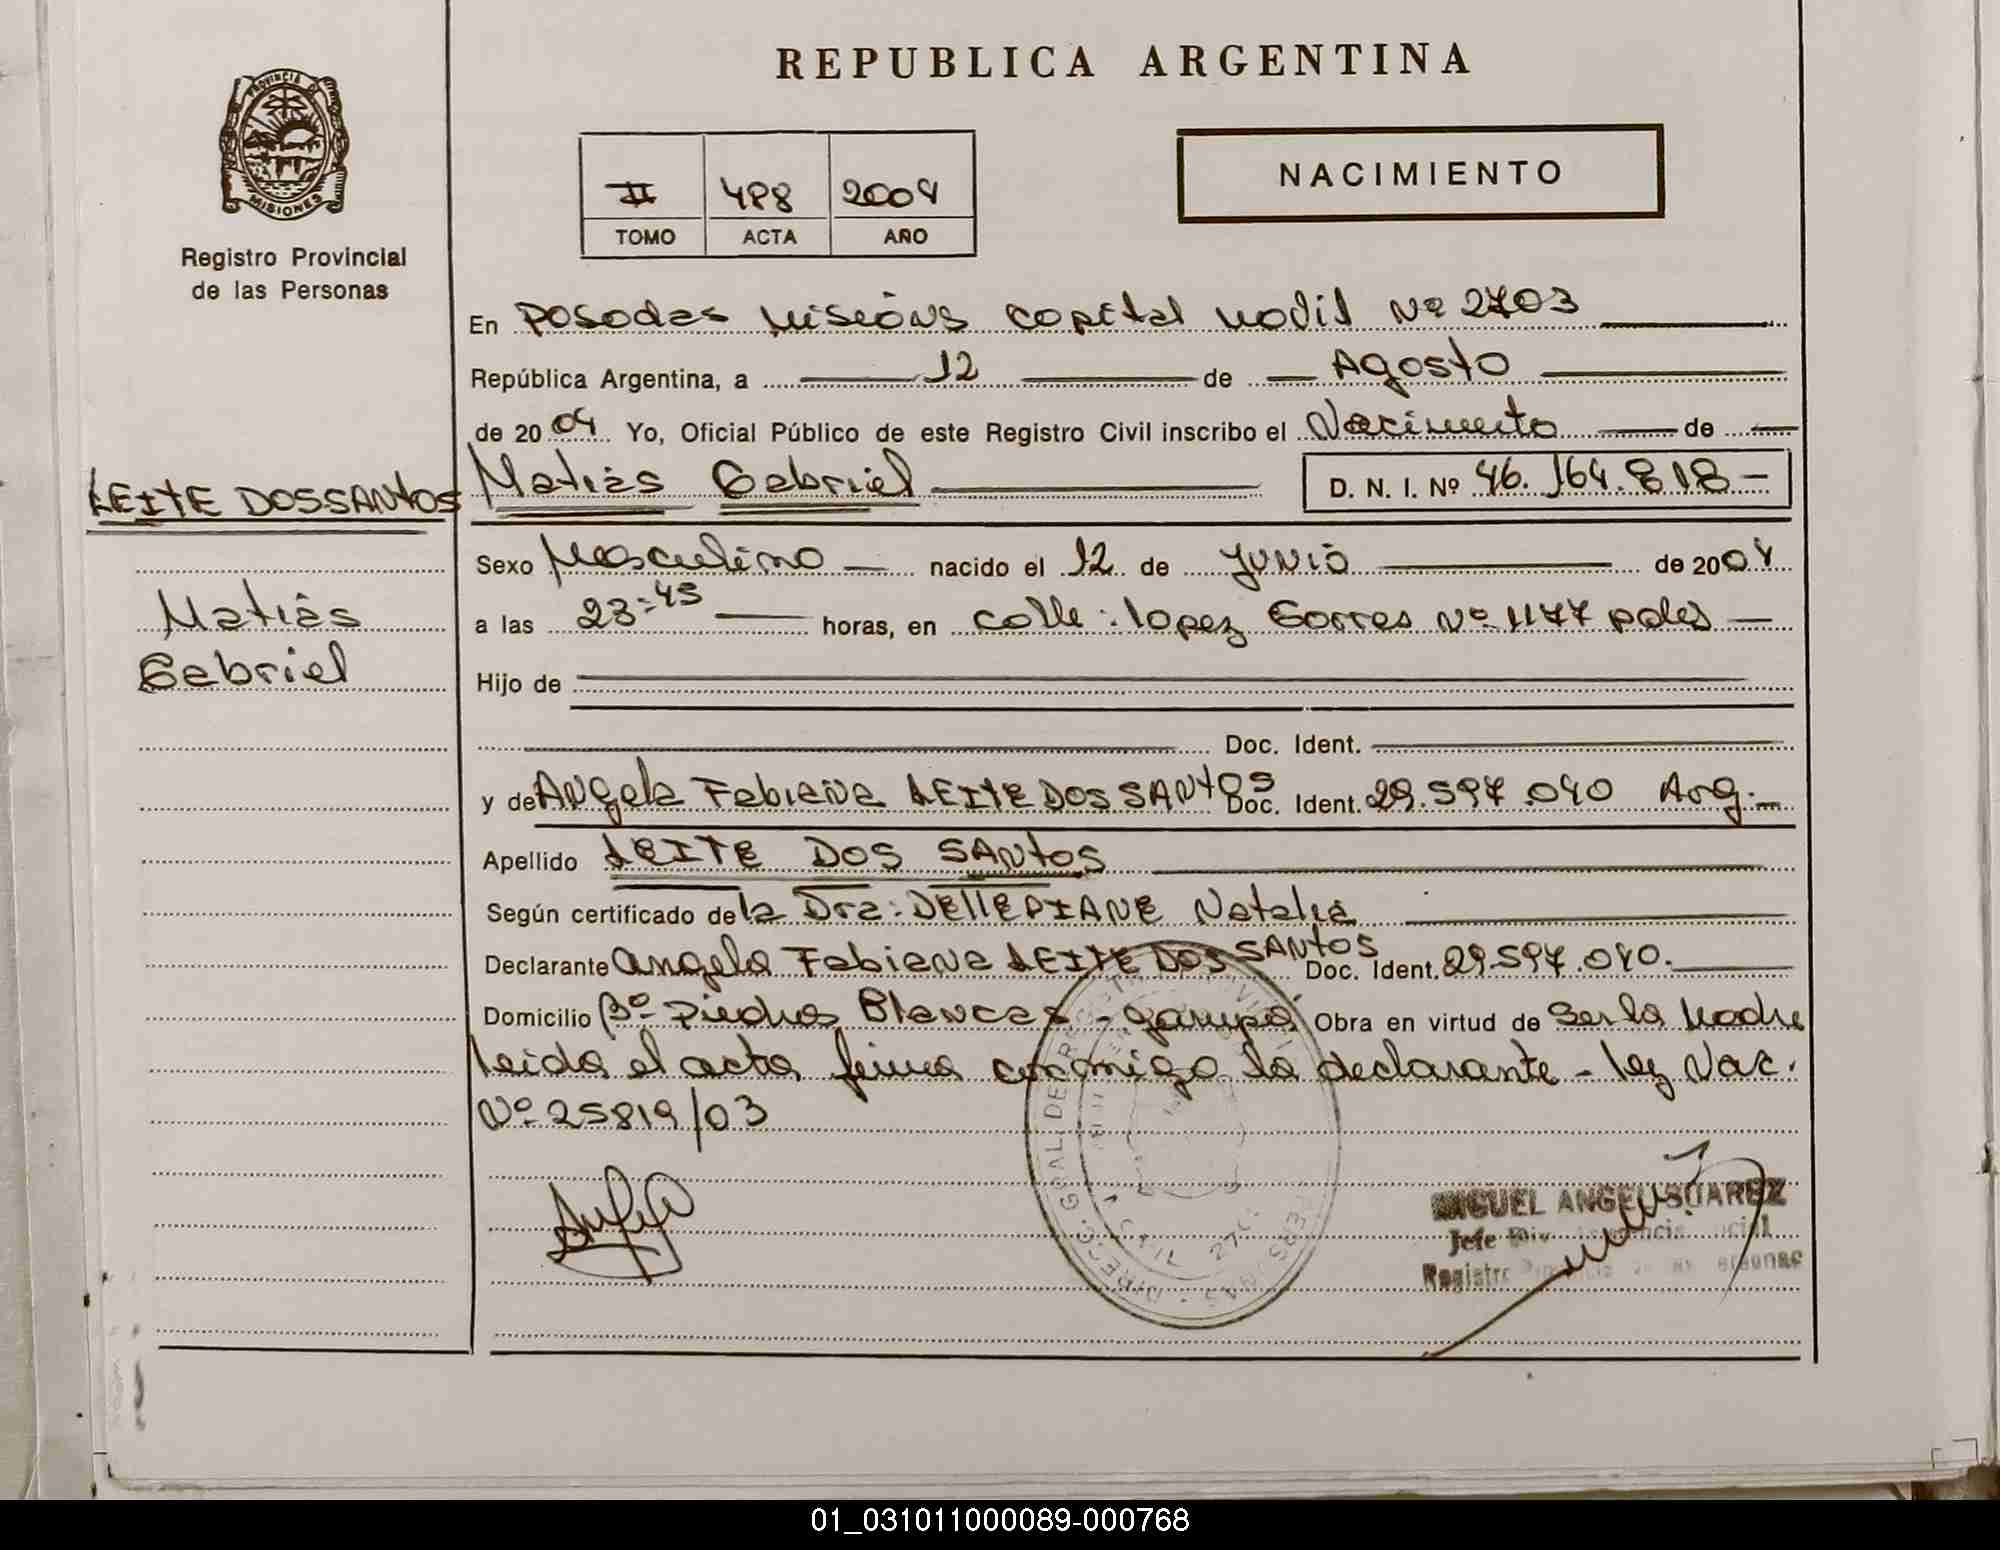 REPUBLICA ARGENTINA
PROVINCIA DE
MISIONES
Registro Provincial
de las Personas
NACIMIENTO
II 488 2004
TOMO ACTA AÑO
En Posadas Misiones Capital Movil Nº 2703
República Argentina, a 12 de Agosto
de 2004 Yo, Oficial Público de este Registro Civil inscribo el Nacimiento de
LEITE DOSSANTOS
Matias Gabriel D. N. I. Nº 46.164.818-
Sexo Masculino nacido el 12 de Junio de 2004
Matias
Gabriel
a las 23:45 horas, en calle: lopez torres Nº 1177 pdas
Hijo de
Doc. Ident.
y de Angela Fabiana LEITE DOS SANTOS Doc. Ident. 29.597.040 Arg.
Apellido LEITE DOS SANTOS
Según certificado de la Dra: DELLEPIANE Natalia
Declarante Angela Fabiana LEITE DOS SANTOS Doc. Ident. 29.597.040.
Domicilio Bº Piedras Blancas - garupá Obra en virtud de Ser la Madre
leida el acta firma conmigo la declarante - ley Nac.
Nº 25819/03
MIGUEL ANGEL SUAREZ
Jefe Div.
Registro
01_031011000089-000768